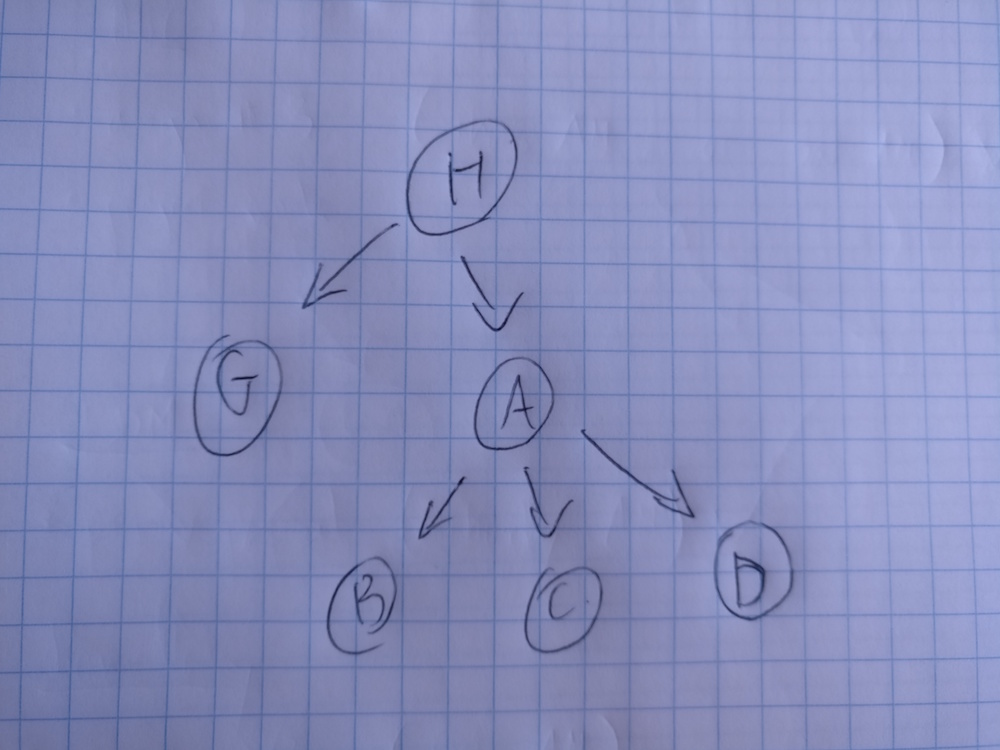 H
G A
B C D